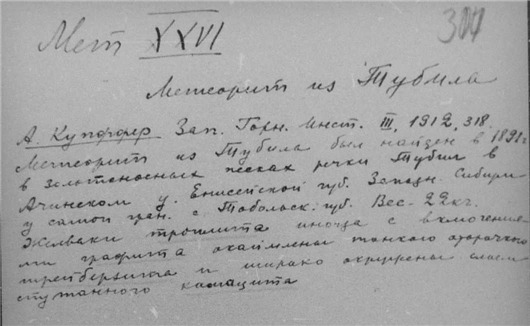 Мет XXVI
304
Метеорит из Тубила
А. Купффер Зап. Горн. Инст. III, 1912, 318.
Метеорит из Тубила был найден в 1891г.
в золотоносных песках речки Тубил в
Ачинском у. Енисейской губ. Западн. Сибири
у самой гран. с Тобольск. губ. Вес - 22 кг.
Желваки троилита иногда с включения-
ми графита окаймлены тонкой оторочкой
шрейберзита и широко окружены слоем
спутанного камацита